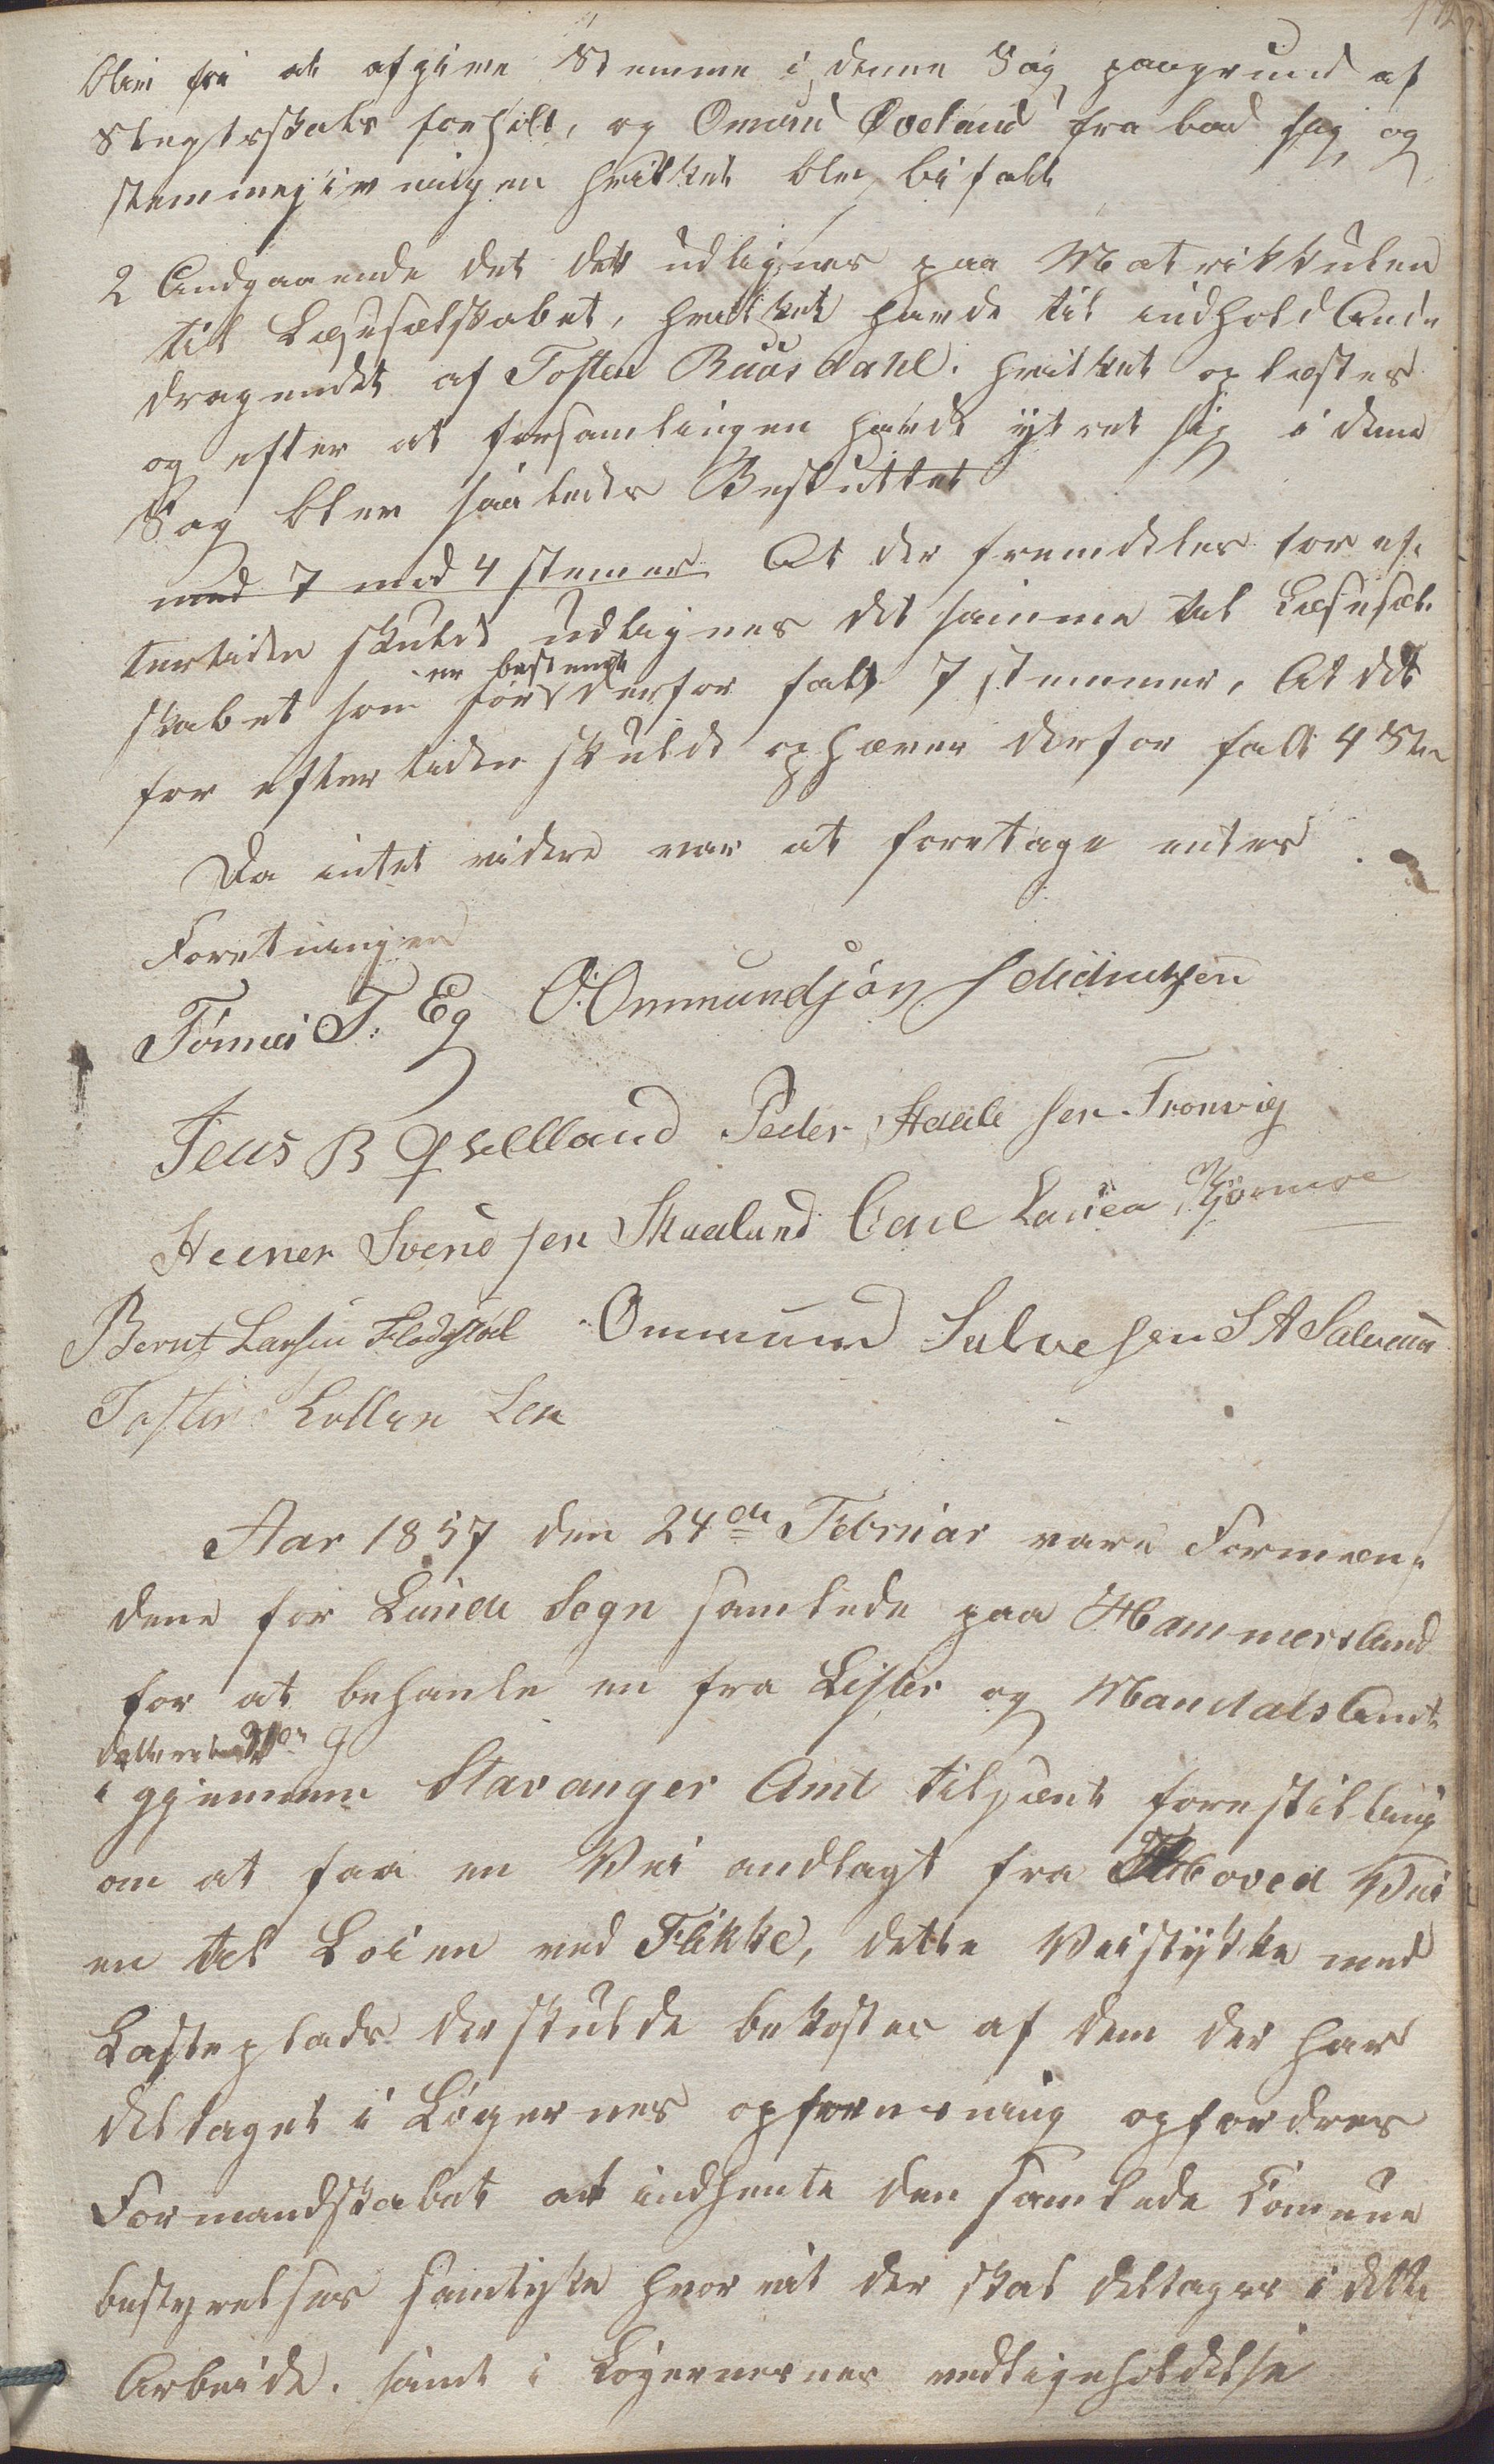 blive fri at afgive Stemme i denne Sag, paagrund af
Slegtsskabs forhold, og Omund Øveland fra bad sig og
stemmegivningen hvilket blev bifalt
2 Andgaaende det der udlignes paa Matrikkulen
til Læseselskabet, hvilket havde til indhold Ande
dragendet af Tosten Ruusdahl. hvilket oplæstes
og efter at forsamlingen havde ytret sig i denne
Sag blev saaledes Besluttet
med 7 mod 4 stemer At der fremdeles for ef-
tertiden skulde udlignes det samme til Læsesel-
er bestemt
skabet som før derfor falt 7 stemmer, At det
for eftertiden skulde ophæves derfor falt 4 Ste
Da intet videre var at foretage entes
Foretningen
Tønnes T. Eg O. Ommundsøn
Jens B Qvelland Peder Aadne sen Tronvig
Steener Svend sen Skaaland Carl
Bernt Larsen Fladstøl Ommund Salvesen S A Salvesen
Tosten
Aar 1857 den 24de Februar vare Formæn-
dene for Lunde Sogn samlede paa Hammersland
for at behanle en fra Lister og Mandals Amt
igjennem Stavanger Amt tilsent forestilling
om at faa en Vei andlagt fra Hoved Vei
en til Loien ved Flikke, dette Veistykke med
Lasteplads der skulde bekostes af dem der har
deltaget i Løgernes opførning opfordres
Formandskabet at indhente den samlede Comune
bestyrelses samtykke hvorvit der skal deltages i dette
Arbeide. samt i Løgernernes vedligeholdelse